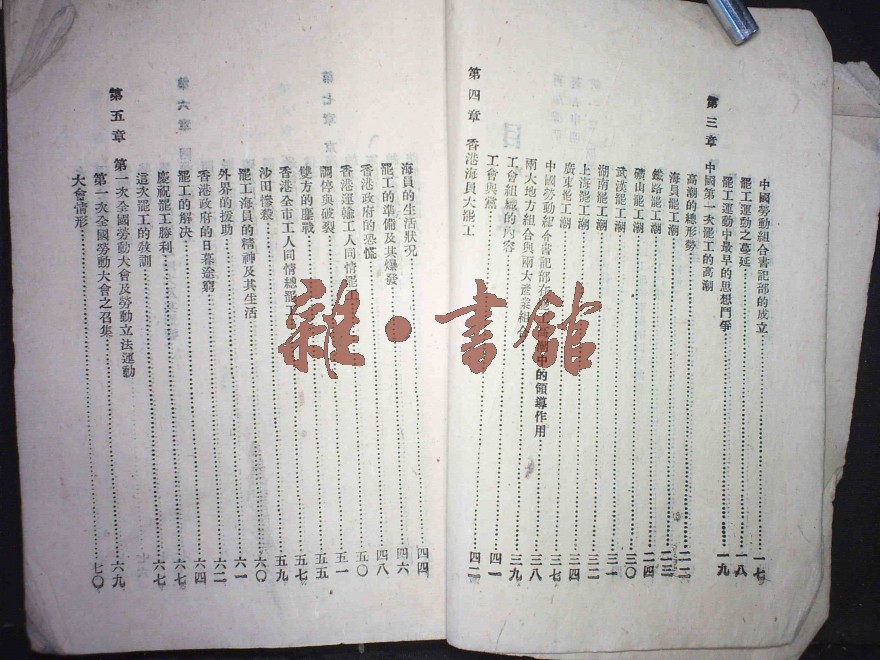 中國勞動組合書記部的成立……一七
罷工運動之蔓延……一八
罷工運動中最早的思想鬥爭……一九
第三章 中國第一次罷工的高潮
高潮的總形勢……二二
海員罷工潮……二三
鐵路罷工潮……二四
礦山罷工潮……三〇
武漢罷工潮……三一
湖南罷工潮……三二
上海罷工潮……三四
廣東罷工潮……三七
中國勞動組合書記部在 的領導作用……三八
兩大地方組合與兩大產業組合……三九
工會組織的內容……四一
工會與黨……四二
第四章 香港海員大罷工
海員的生活狀況……四四
罷工的準備及其爆發……四六
香港政府的恐慌……四八
香港運輸工人同情罷工……五〇
調停與破裂……五一
雙方的鏖戰……五五
香港全市工人同情總罷工……五七
沙田慘殺……五九
罷工海員的精神及其生活……六〇
外界的援助……六一
香港政府的日暮途窮……六二
罷工的解決……六四
慶祝罷工勝利……六七
這次罷工的教訓……六七
第五章 第一次全國勞動大會及勞動立法運動
第一次全國勞動大會之召集……六九
大會情形……七〇
雜·書館